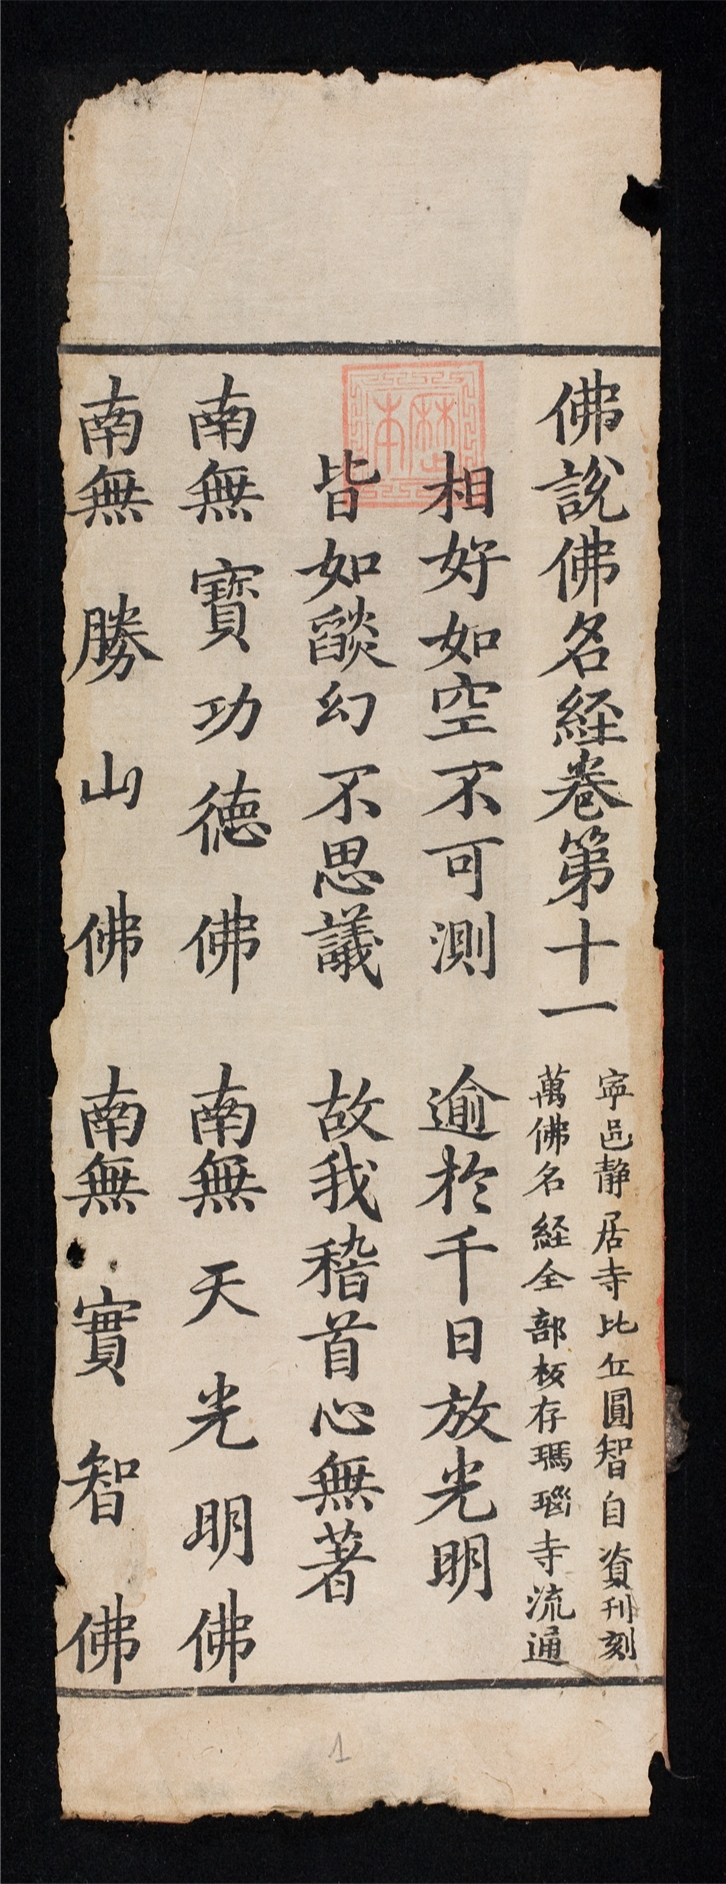 佛說佛名経卷第十一
寜邑静居寺比丘圓智自資刊刻
萬佛名経全部板存瑪瑙寺流通
相好如空不可測 逾於千日放光明
皆如燄幻不思議 故我稽首心無著
南無寶功德佛 南無天光明佛
南無勝山佛 南無實智佛
1